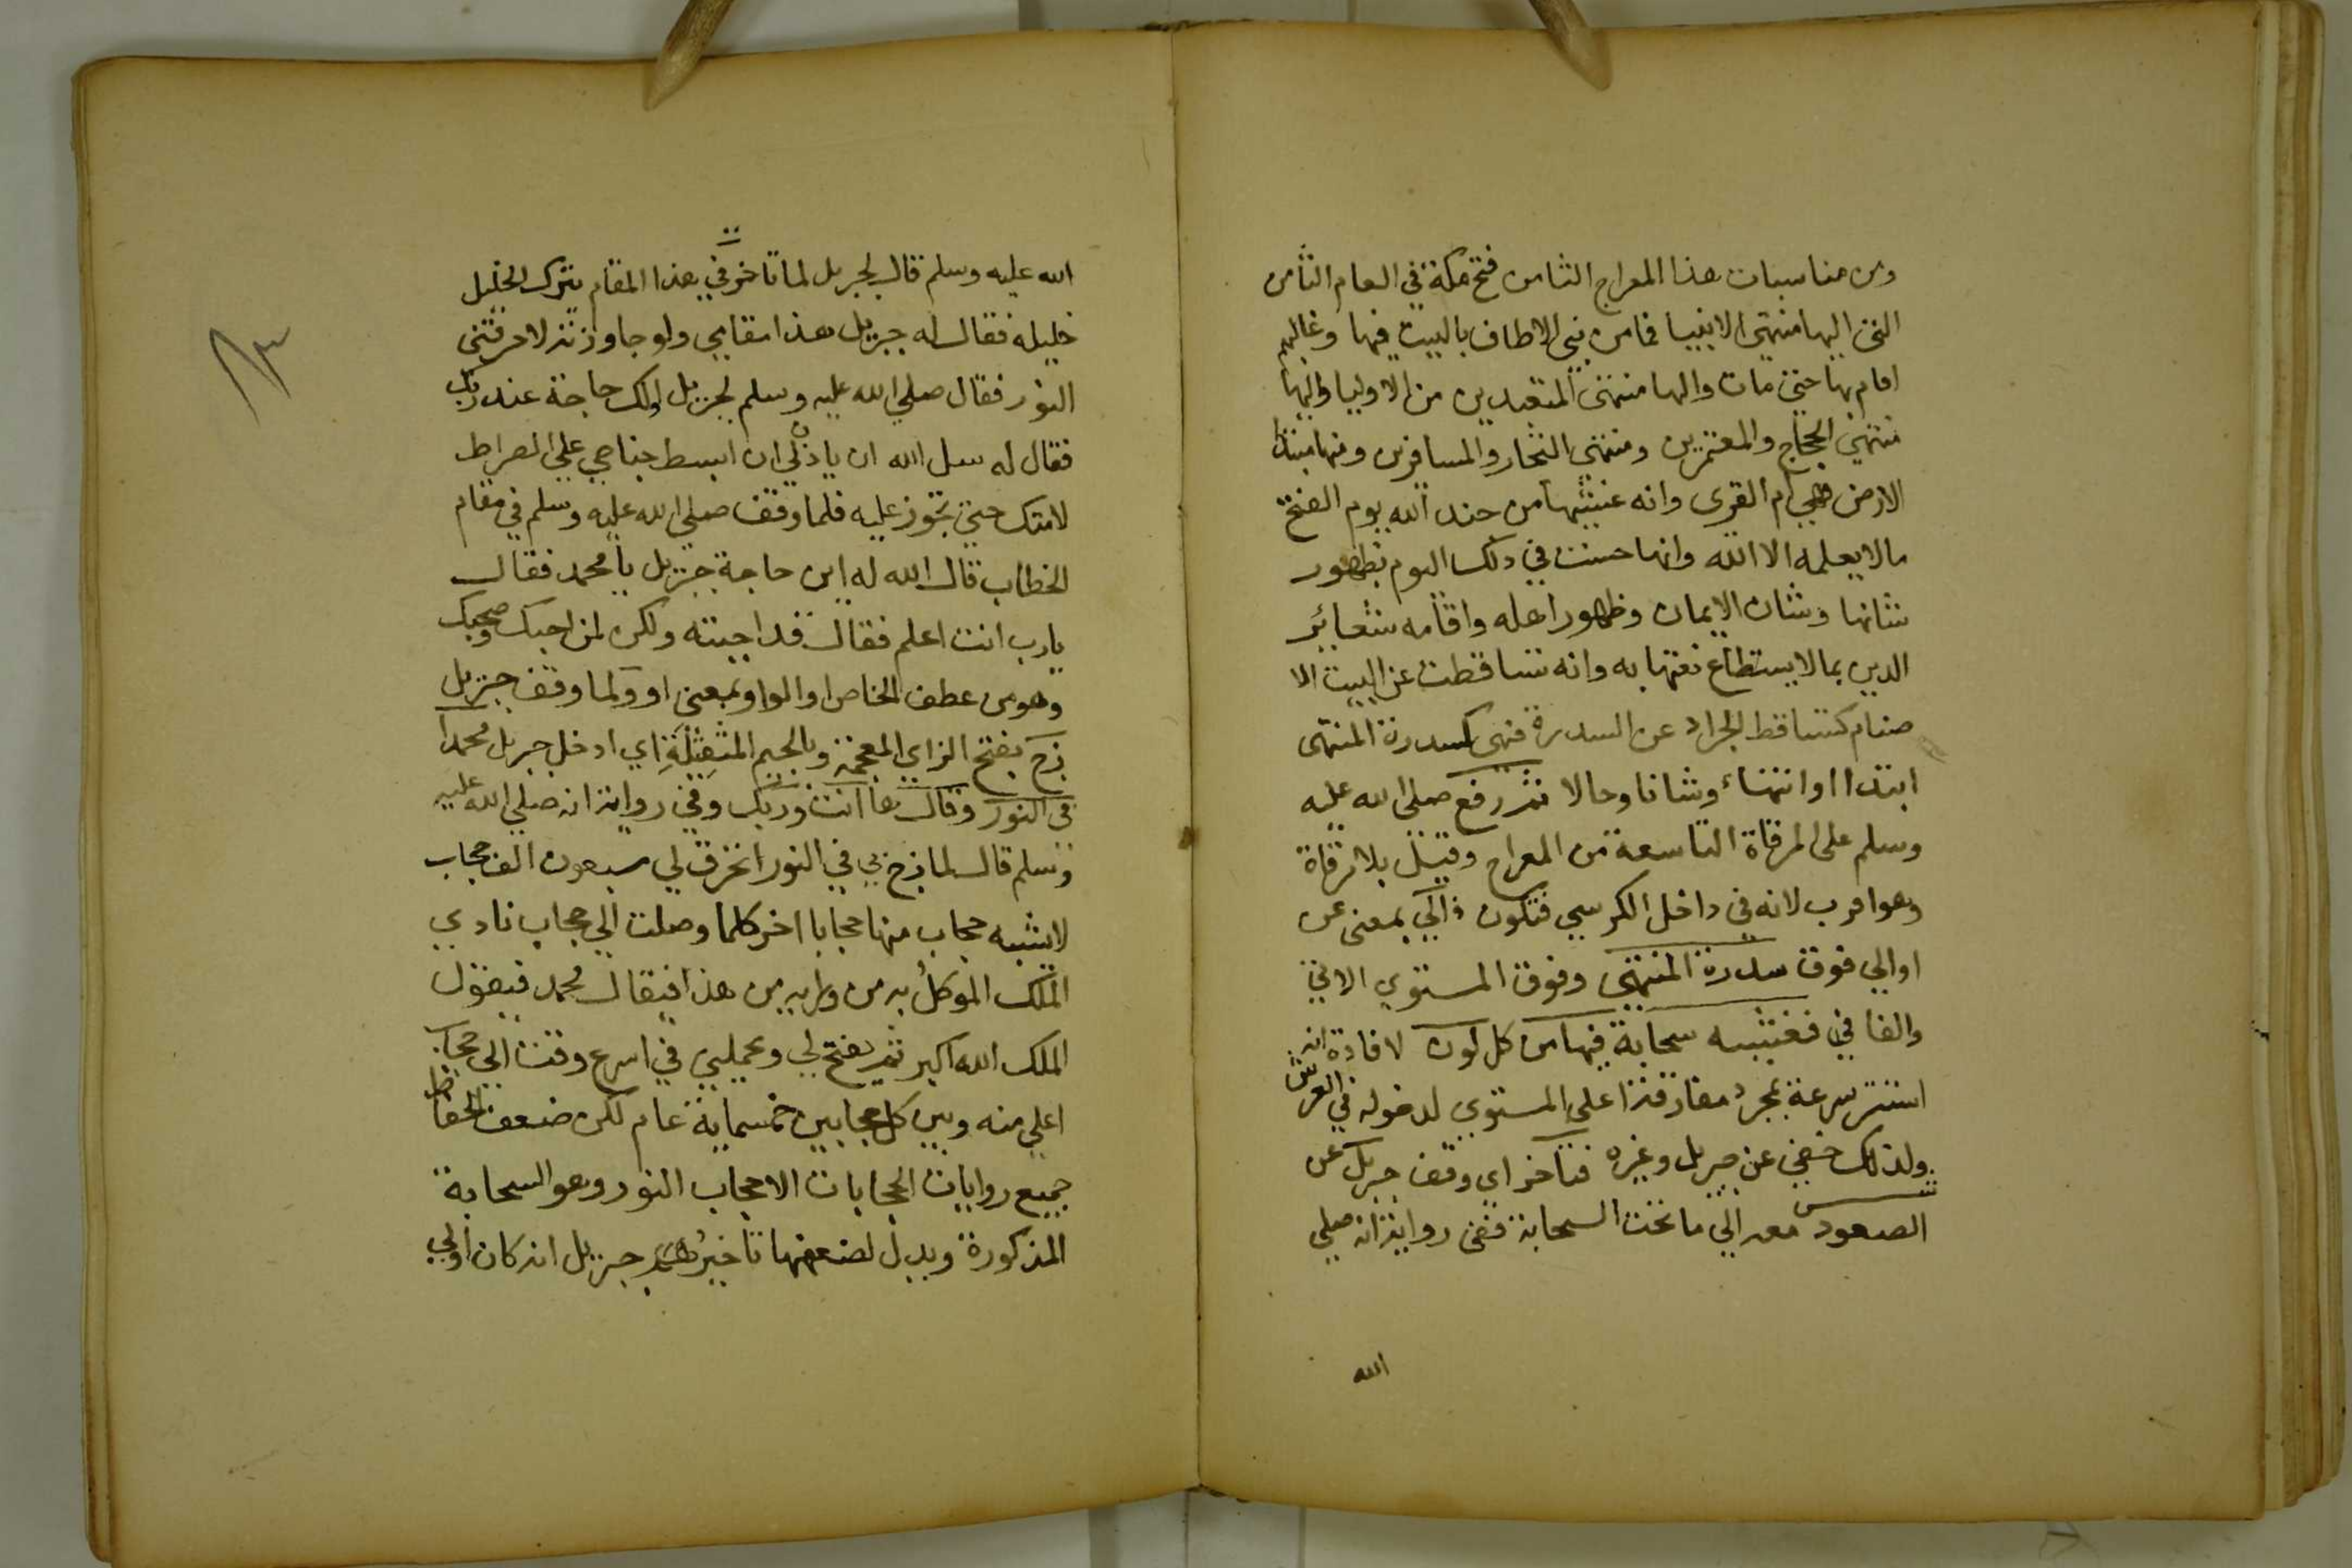 ومن مناسبات هذا المعراج الثامن فتح مكة في العام الثامن
التي اليها منتهى الانبيا فما من نبي الا طاف بالبيت فيها وغالبهم
اقام بها حتى مات واليها منتهى المتعبدين من الاوليا واليها
منتهى الحجاج والمعتمرين ومنتهى التجار والمسافرين ومنها مبتدا
الارض فهي ام القرى وانه غشيها من جند الله يوم الفتح
ما لا يعلمه الا الله وانها حسنت في ذلك اليوم بظهور
شانها وشان الايمان وظهور اهله واقامه شعائر
الدين بما لا يستطاع نعتها به وانه تساقطت عن البيت الا
صنام كتساقط الجراد عن السدرة فهى كسدرة المنتهى
ابتداا وانتهاء وشانا وحالا ثم رفع صلى الله عليه
وسلم على المرقاة التاسعة من المعراج وقيل بلا مرقاة
وهو اقرب لانه في داخل الكرسي فتكون الى بمعنى عن
او الي فوق سدرة المنتهى وفوق المستوي الاتي
والفا في فغشيه سحابة فيها من كل لون لافادة انه
استتر سرعة بمجرد مفارقته اعلى المستوي لدخوله في العرش
ولذلك خفي عن جبريل وغيره فتاخر اي وقف جبريل عن
الصعود معه الي ما تحت السحابة ففى رواية انه صلي
الله
٨٣
الله عليه وسلم قال لجبريل لما تاخر في هذا المقام يترك الخليل
خليله فقال له جبريل هذا مقامي ولو جاوزته لاحرقتني
النور فقال صلي الله عليه وسلم لجبريل الك حاجة عند ربك
فقال له سل الله ان ياذن لي ان ابسط جناحي علي الصراط
لامتك حتى تجوز عليه فلما وقف صلى الله عليه وسلم في مقام
الخطاب قال الله له اين حاجة جبريل يا محمد فقال
يارب انت اعلم فقال قد اجبته ولكن لمن احبك وصحبك
وهو من عطف الخاص او الواو بمعنى او ولما وقف جبريل
زج بفتح الزاي المعجمة وبالجيم المثقلة اي ادخل جبريل محمدا
في النور وقال ها انت وربك وفي رواية انه صلي الله عليه
وسلم قال لما زج بي في النور انخرق لي سبعون الف حجاب
لا يشبه حجاب منها حجابا اخر كلما وصلت الي حجاب نادي
الملك الموكل به من وراءه من هذا فيقال محمد فيقول
الملك الله اكبر ثم يفتح لي ويحملني في اسرع وقت الى حجاب
اعلي منه وبين كل حجابين خمسماية عام لكن ضعف الحفاظ
جميع روايات الحجابات الا حجاب النور وهو السحابة
المذكورة ويدل لضعفها تاخير جبريل اذ كان اولي